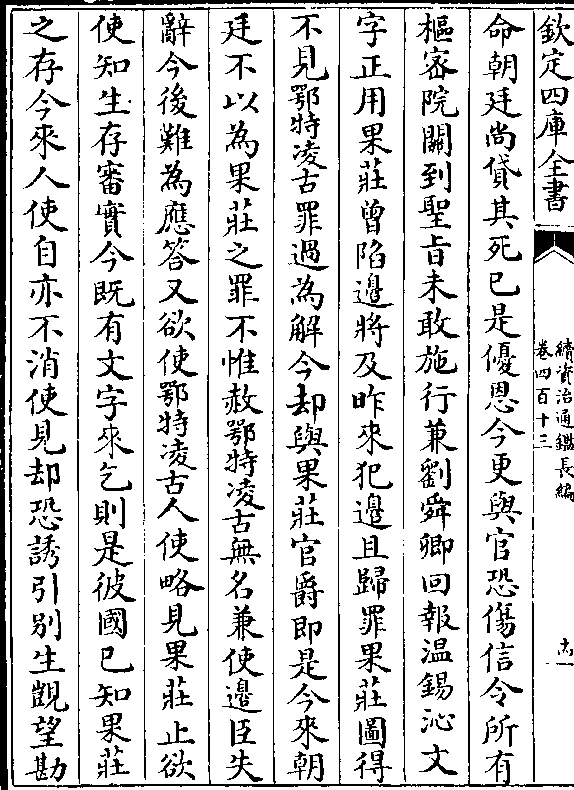 欽定四庫全書
續資治通鑑長編
卷四百十三
命朝廷尚貸其死已是優恩今更與官恐傷信令所有
樞密院關到聖旨未敢施行兼劉舜卿回報温錫沁文
字正用果莊曾陷邊將及昨來犯邊且歸罪果莊圖得
不見鄂特凌古罪過為解今却與果莊官爵即是今來朝
廷不以為果莊之罪不惟赦鄂特凌古無名兼使邊臣失
辭今後難為應答又欲使鄂特凌古人使略見果莊止欲
使知生存審實今既有文字來乞則是彼國已知果莊
之存今來人使自亦不消使見却恐誘引別生覬望勘